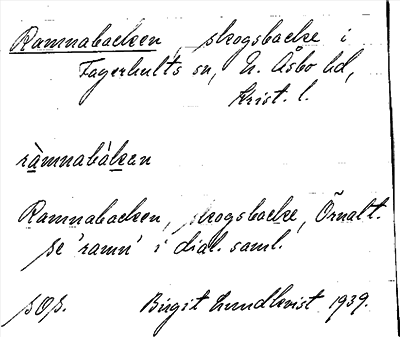 Ramnabacken, skogsbacke i
Fagerhults sn, N. Åsbo hd,
Krist. l.
ràmnabákan
Ramnabacken, skogsbacke, Örnalt.
se 'ramn' i dial. saml.
sOs. Birgit Lundkvist 1939.